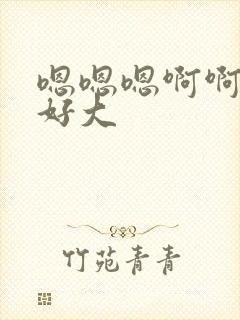 嗯嗯嗯啊啊
好大
竹苑青青